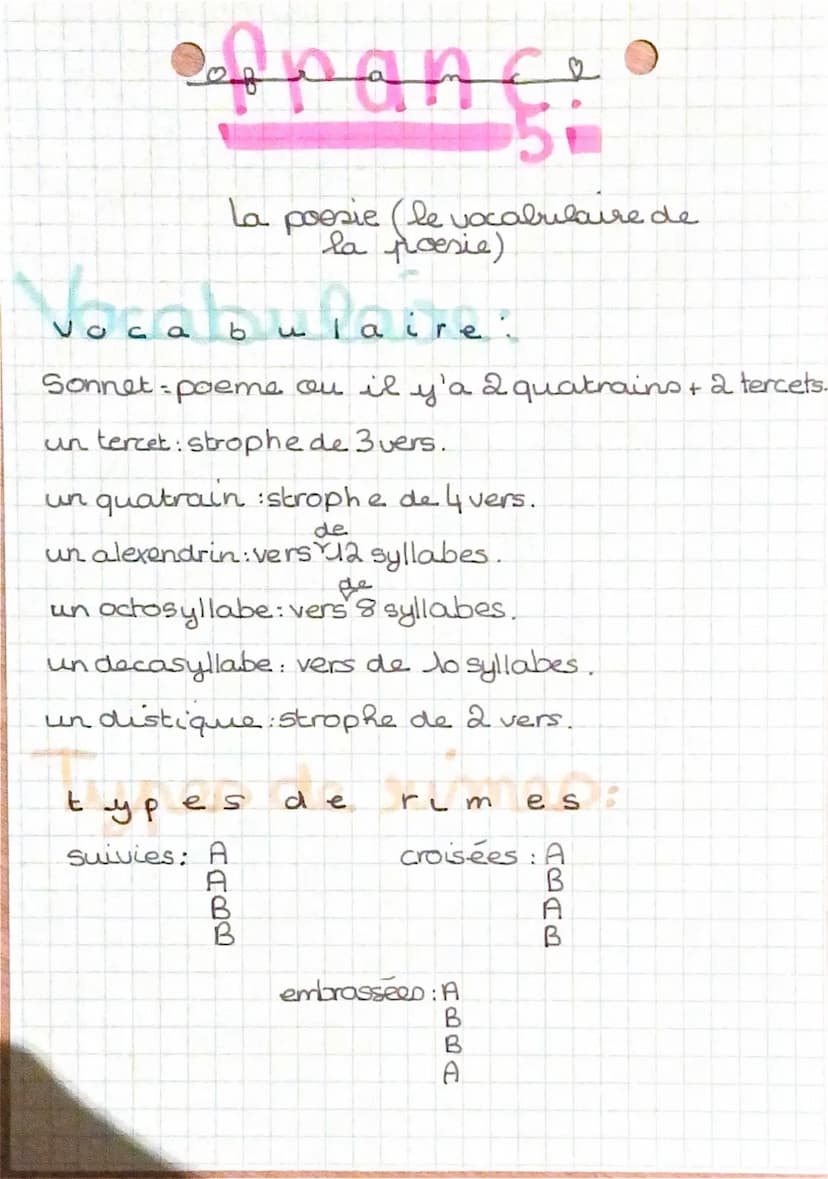 franç
5.
La poesie (le vocabulaire de
la poesie)
Vocabulaire:
Sonnet = poeme ou il y'a 2 quatrains + 2 tercets.
un tercet : strophe de 3 vers.
un quatrain : strophe de 4 vers.
un alexendrin : vers de 12 syllabes.
un octosyllabe : vers de 8 syllabes.
un decasyllabe : vers de 10 syllabes.
un distique : strophe de 2 vers.
types de rimes:
suivies: A croisées : A
A B
B A
B B
embrassées : A
B
B
A